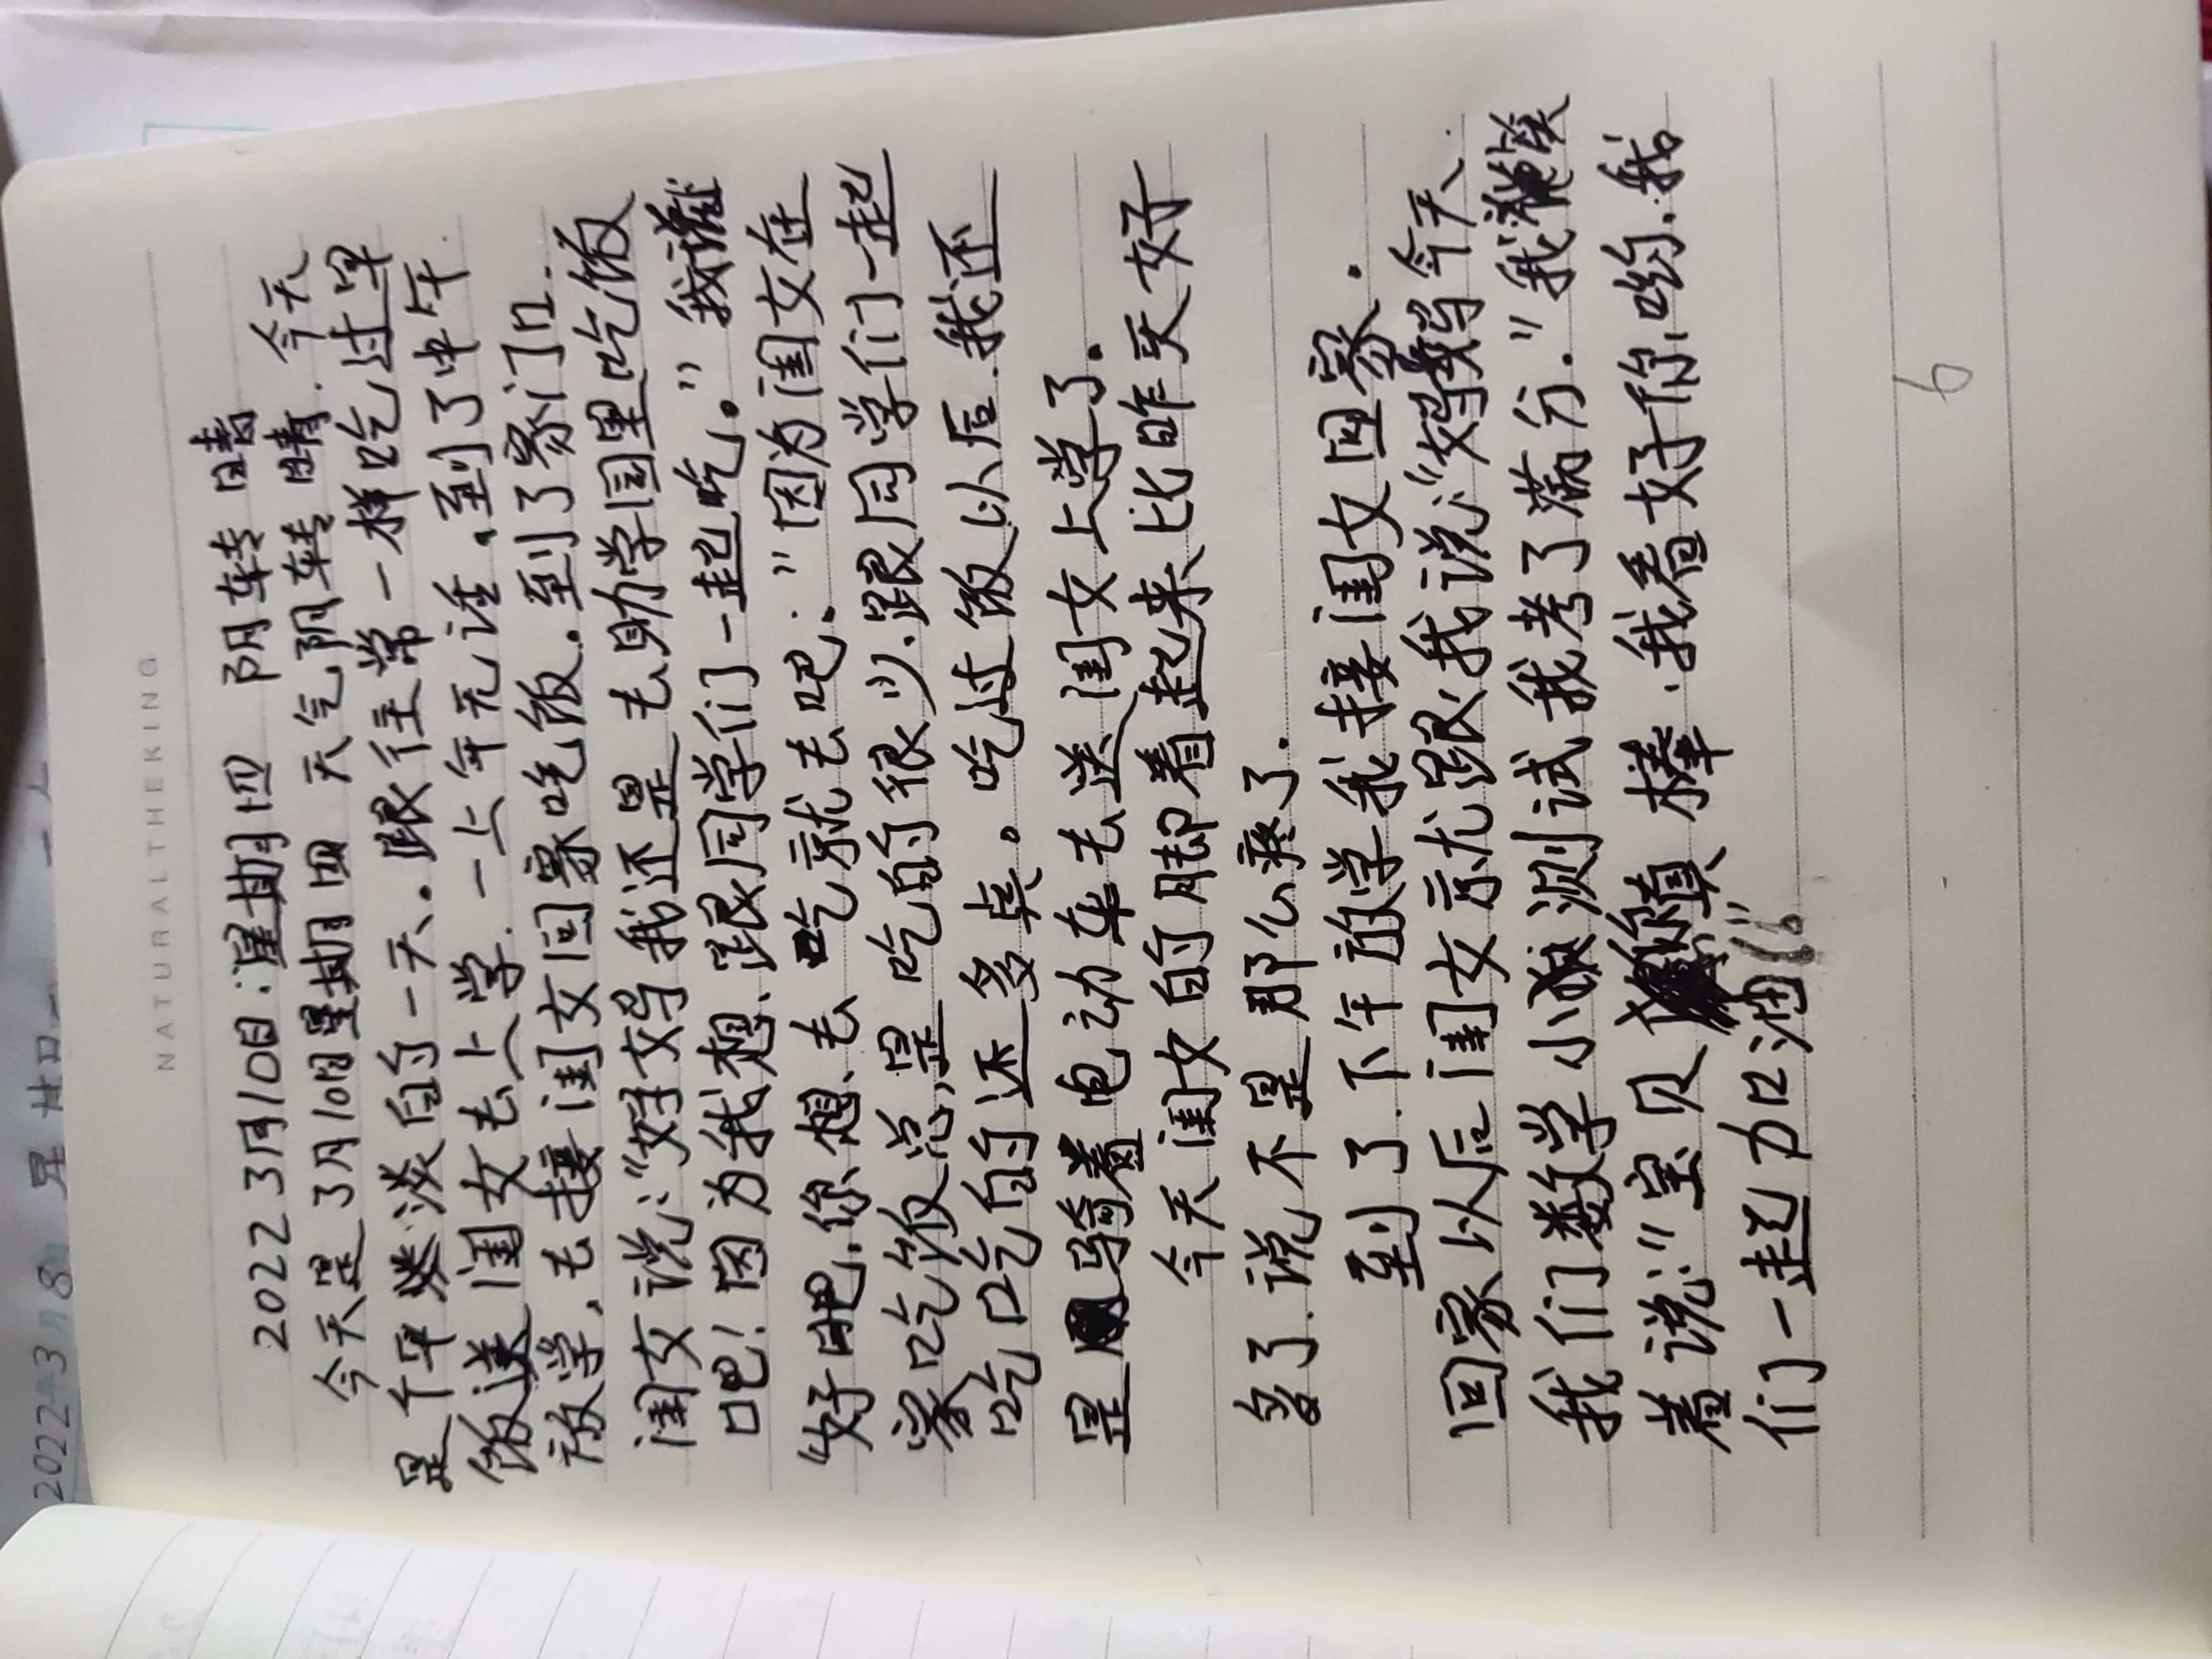 2022年3月8日 星期二
NATURALTHEKING
2022 3月10日:星期四 阴转晴
今天是3月10日星期四 天气阴转晴.今天
是个平淡的一天。跟往常一样吃过早
饭送闺女去上学.一上午无话.到了中午
放学,去接闺女回家吃饭.到了家门口.
闺女说:“好妈我还是去助学园里吃饭
吧!因为我想跟同学们一起吃。”我说
“好吧.你想去吃就去吧.”因为闺女在
家吃饭总是吃的很少.跟同学们一起
吃吃的还多点。吃过饭以后.我还
是骑着电动车去送闺女上学了.
今天闺女的脚看起来比昨天好
多了.说不是那么疼了.
到了.下午放学我接闺女回家.
回家以后闺女就跟我说:“妈妈今天
我们数学小测试我考了满分.”我笑
着说:“宝贝你真棒.我看好你哟.我
们一起加油!”
6